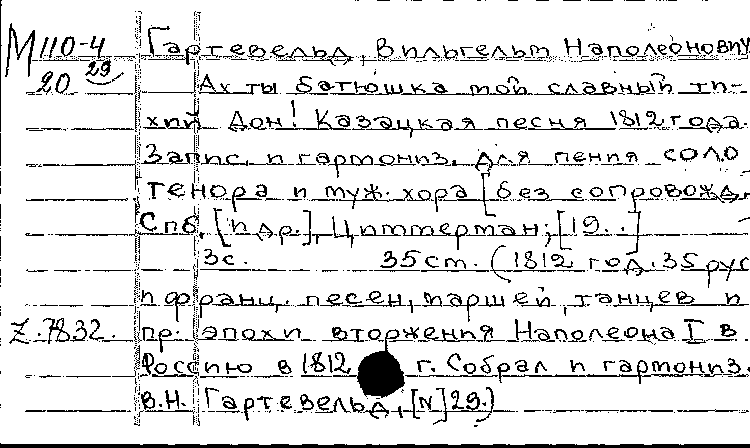 М 110-4 Гартевельд, Вильгельм Наполеонович
20 29 Ах ты батюшка мой славный ти-
хий Дон! Казацкая песня 1812 года.
Запис. и гармониз. для пения соло
тенора и муж. хора [без сопровожд.
Спб. [и др.], Циммерман; [19. .]
3с. 35 см. (1812 год. 35 рус
и франц. песен, маршей, танцев и
Z.7832. пр. эпохи вторжения Наполеона I в
Россию в 1812 г. Собрал и гармониз.
В.Н. Гартевельд, [N] 29.)